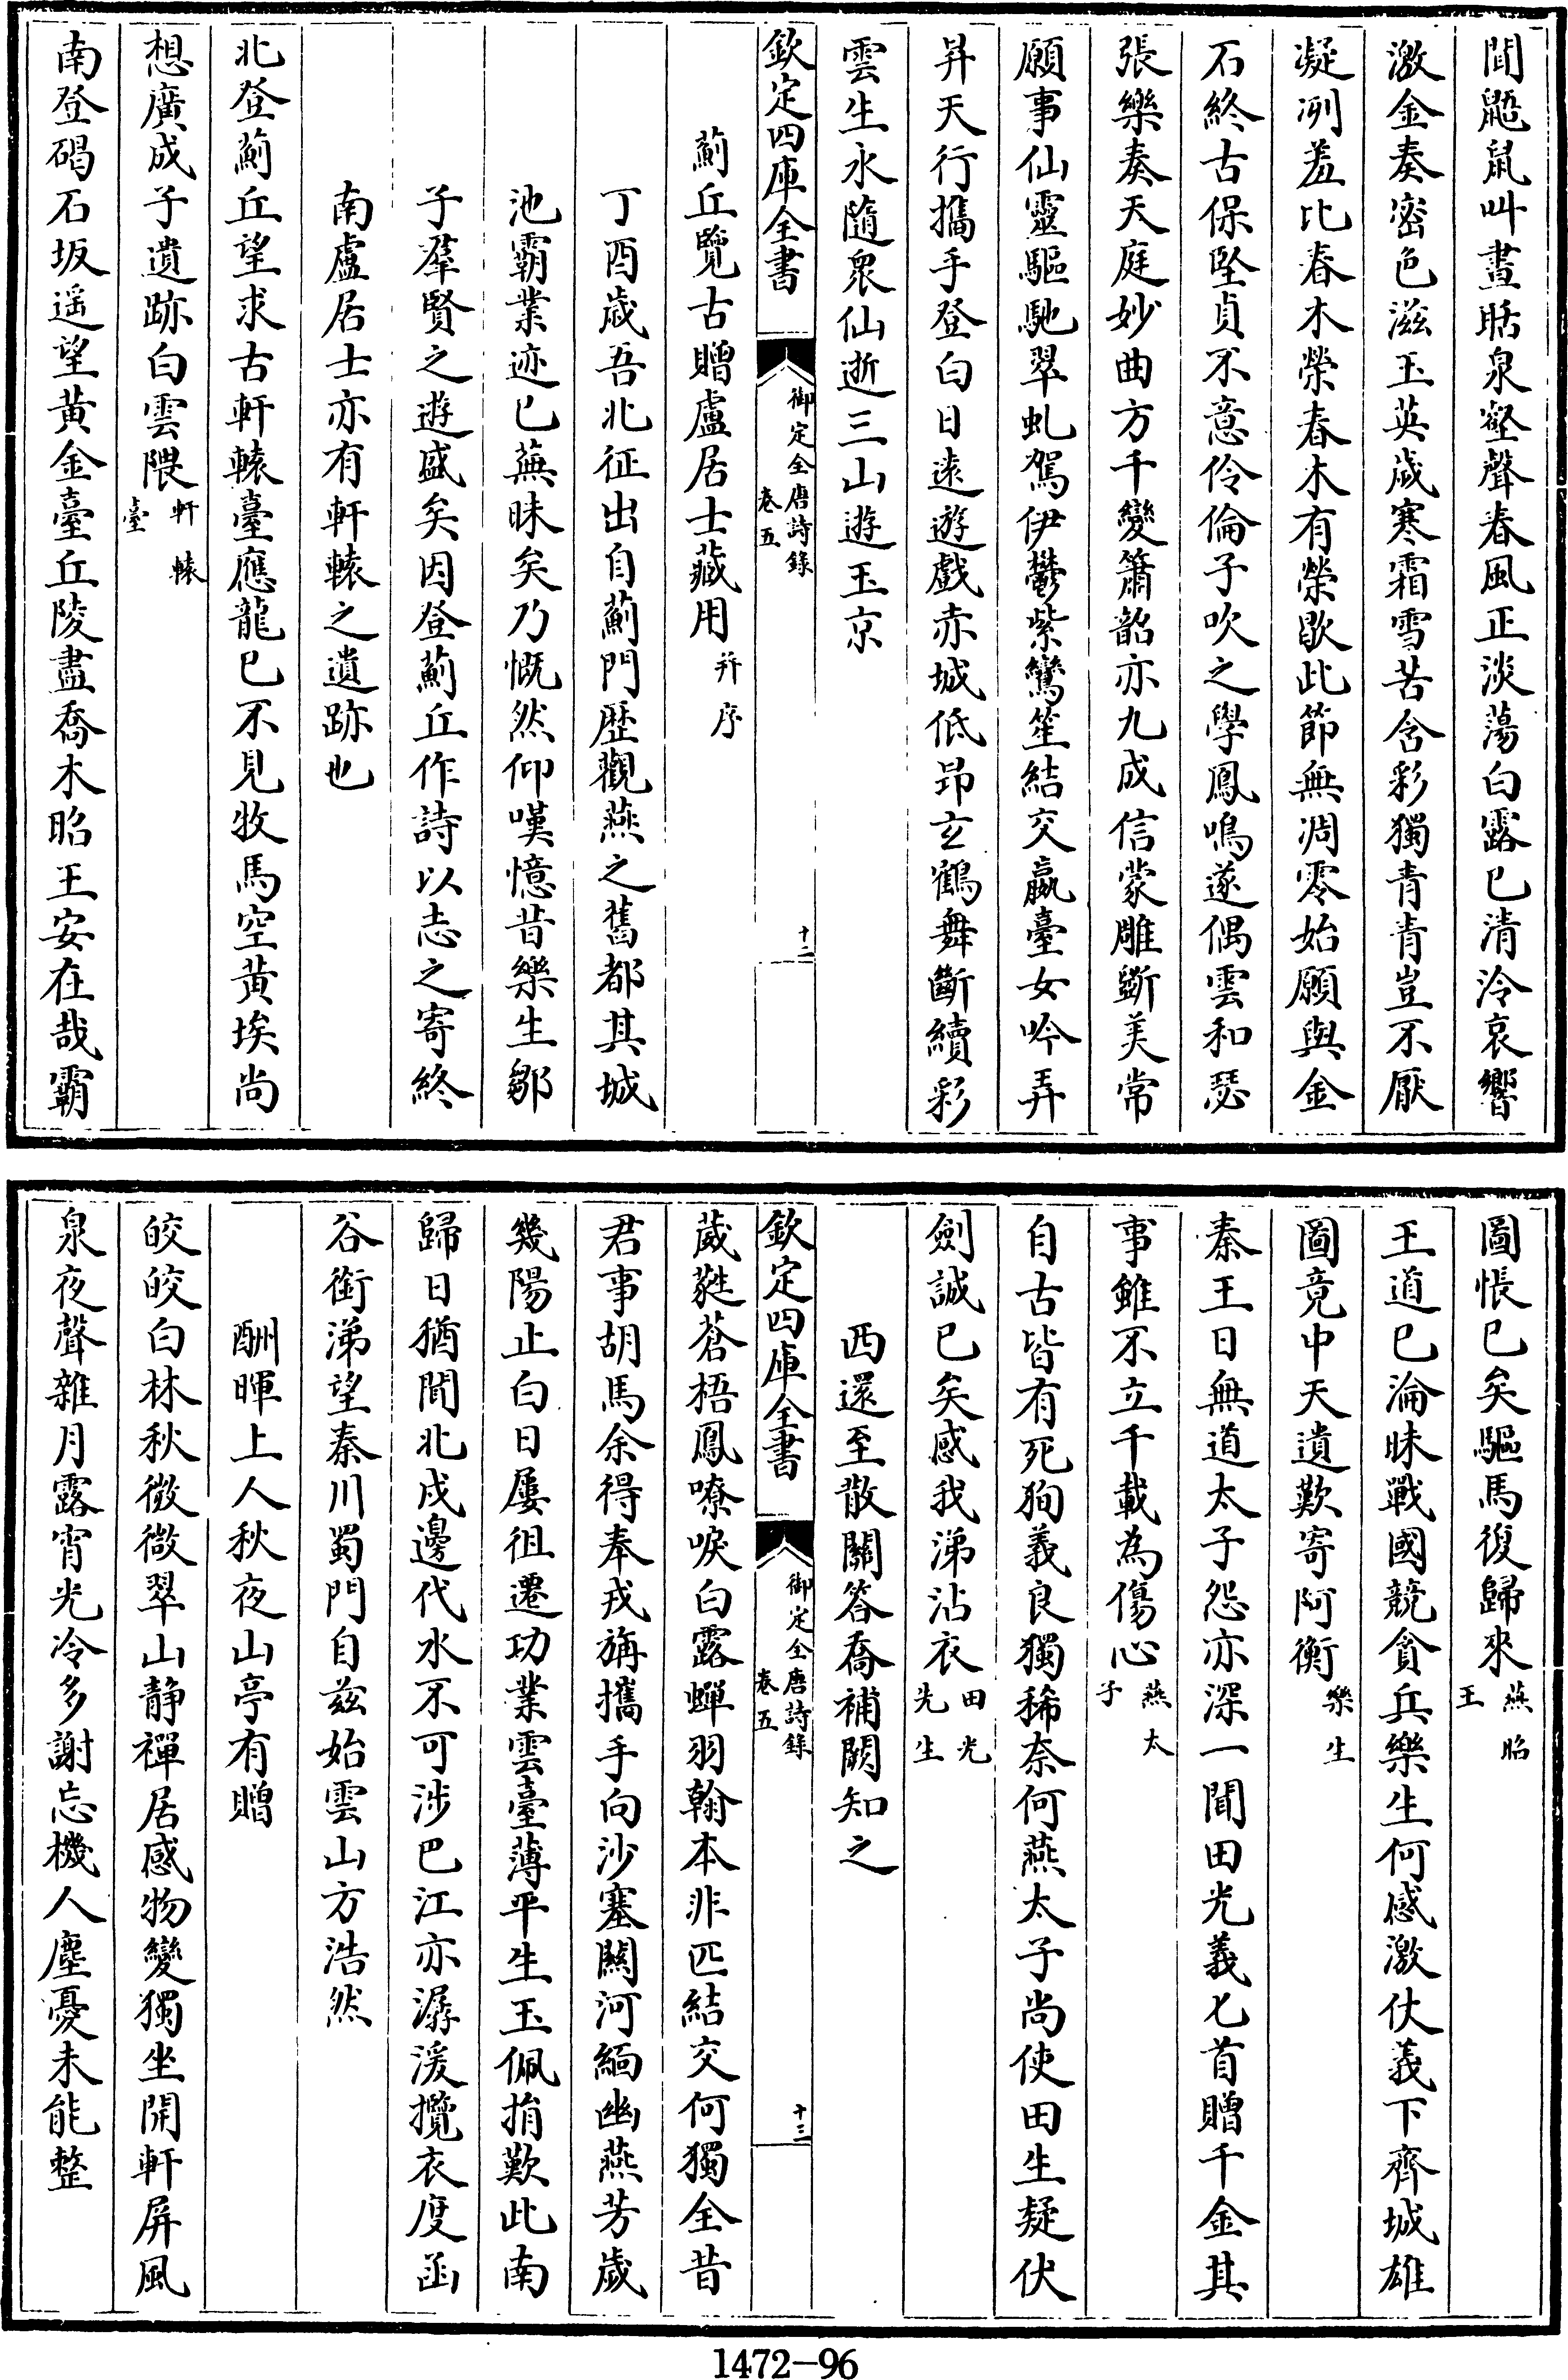 聞鼯鼠叫晝聒泉壑聲春風正淡蕩白露已清泠哀響
激金奏密色滋玉英歲寒霜雪苦含彩獨青青豈不厭
凝冽羞比春木榮春木有榮歇此節無凋零始願與金
石終古保堅貞不意伶倫子吹之學鳳鳴遂偶雲和瑟
張樂奏天庭妙曲方千變簫韶亦九成信蒙雕斲美常
願事仙靈驅馳翠虬駕伊鬱紫鸞笙結交嬴臺女吟弄
昇天行攜手登白日遠遊戲赤城低昂玄鶴舞斷續彩
雲生永隨衆仙逝三山遊玉京
欽定四庫全書
御定全唐詩錄
卷五
十二
薊丘覽古贈盧居士藏用
并序
丁酉歲吾北征出自薊門歷觀燕之舊都其城
池霸業迹已蕪昧矣乃慨然仰嘆憶昔樂生鄒
子羣賢之遊盛矣因登薊丘作詩以志之寄終
南盧居士亦有軒轅之遺跡也
北登薊丘望求古軒轅臺應龍已不見牧馬空黃埃尚
想廣成子遺跡白雲隈
軒轅
臺
南登碣石坂遥望黃金臺丘陵盡喬木昭王安在哉霸
圖悵已矣驅馬復歸來
燕昭
王
王道已淪昧戰國競貪兵樂生何感激伏義下齊城雄
圖竟中天遺歎寄阿衡
樂生
秦王日無道太子怨亦深一聞田光義匕首贈千金其
事雖不立千載為傷心
燕太
子
自古皆有死狥義良獨稀奈何燕太子尚使田生疑伏
劍誠已矣感我涕沾衣
田光
先生
西還至散關答喬補闕知之
欽定四庫全書
御定全唐詩錄
卷五
十三
葳蕤蒼梧鳳嘹唳白露蟬羽翰本非匹結交何獨全昔
君事胡馬余得奉戎旃攜手向沙塞關河緬幽燕芳歲
幾陽止白日屢徂遷功業雲臺薄平生玉佩捐歎此南
歸日猶聞北戍邊代水不可涉巴江亦潺湲攬衣度函
谷銜涕望秦川蜀門自兹始雲山方浩然
酬暉上人秋夜山亭有贈
皎皎白林秋微微翠山静禪居感物變獨坐開軒屏風
泉夜聲雜月露宵光冷多謝忘機人塵憂未能整
1472—96